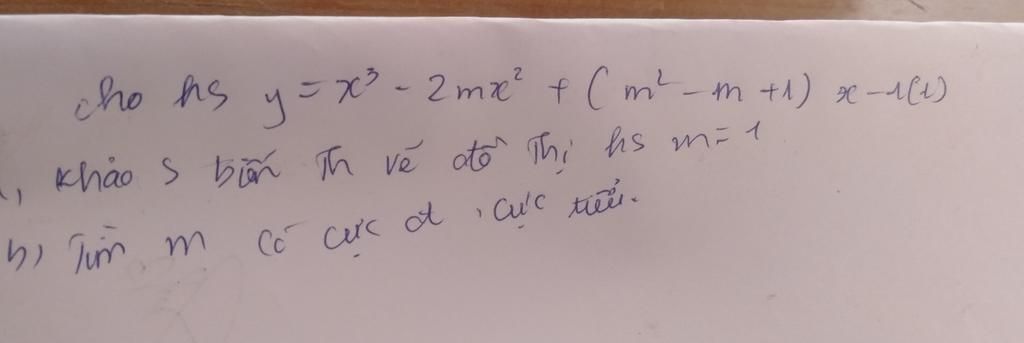 cho hs y = x³ - 2mx² + (m² - m + 1) x - 1 (1)
, khảo s biến Th vẽ đồ Thị hs m = 1
b) Tìm m có cực đ, cực tiểu.